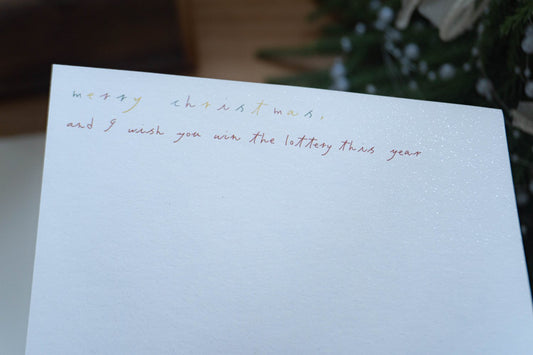 merry christmas,
and I wish you win the lottery this year